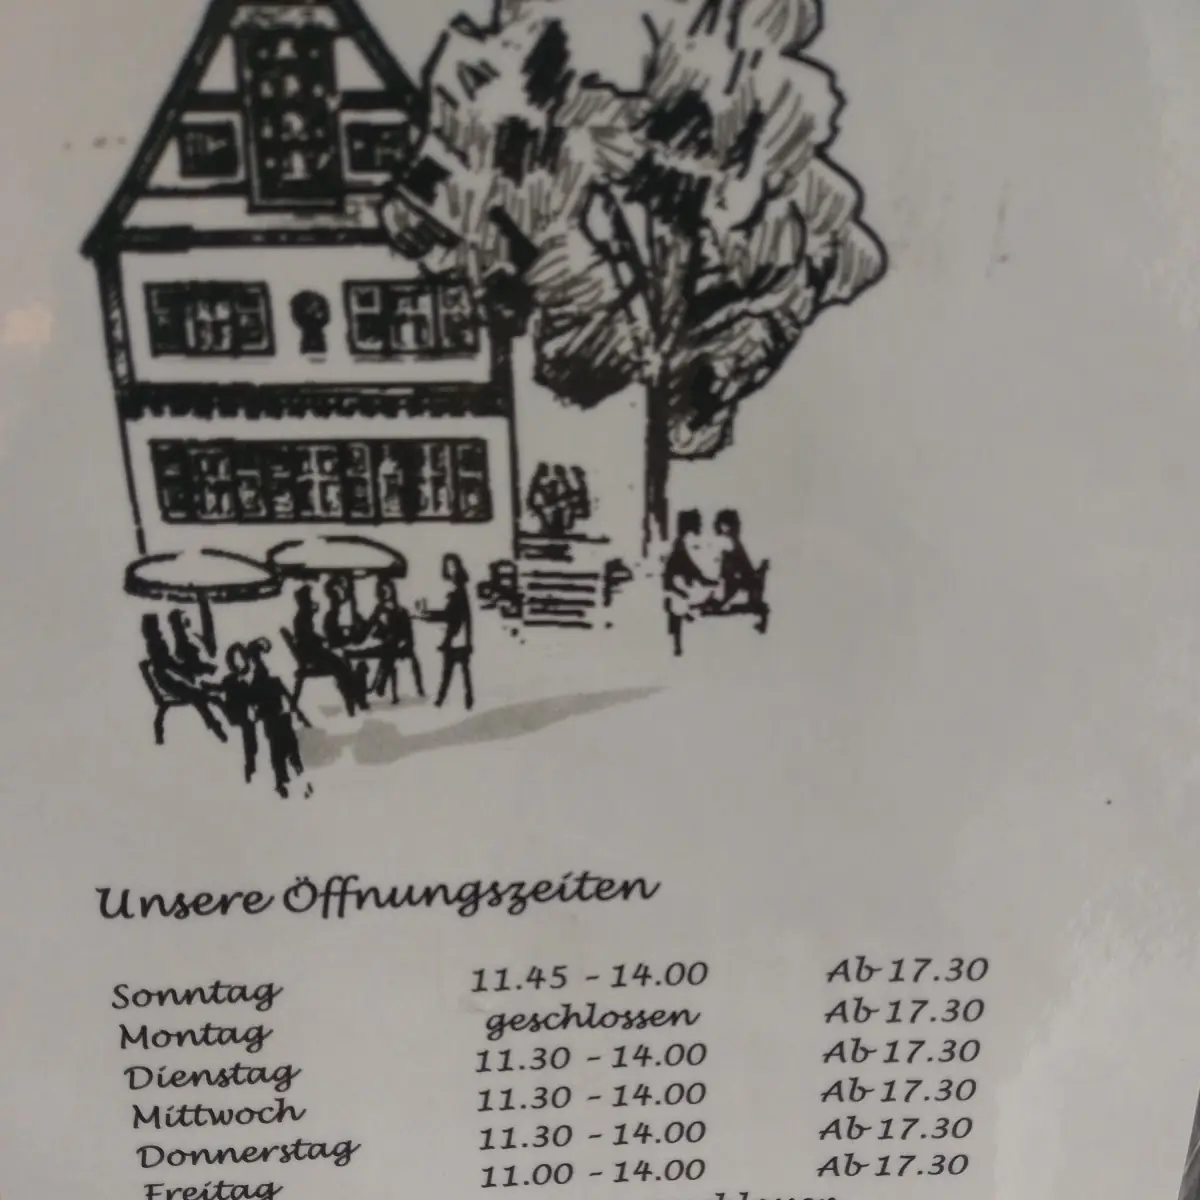 Unsere Öffnungszeiten
Sonntag 11.45 - 14.00 Ab 17.30
Montag geschlossen Ab 17.30
Dienstag 11.30 - 14.00 Ab 17.30
Mittwoch 11.30 - 14.00 Ab 17.30
Donnerstag 11.30 - 14.00 Ab 17.30
Freitag 11.00 - 14.00 Ab 17.30